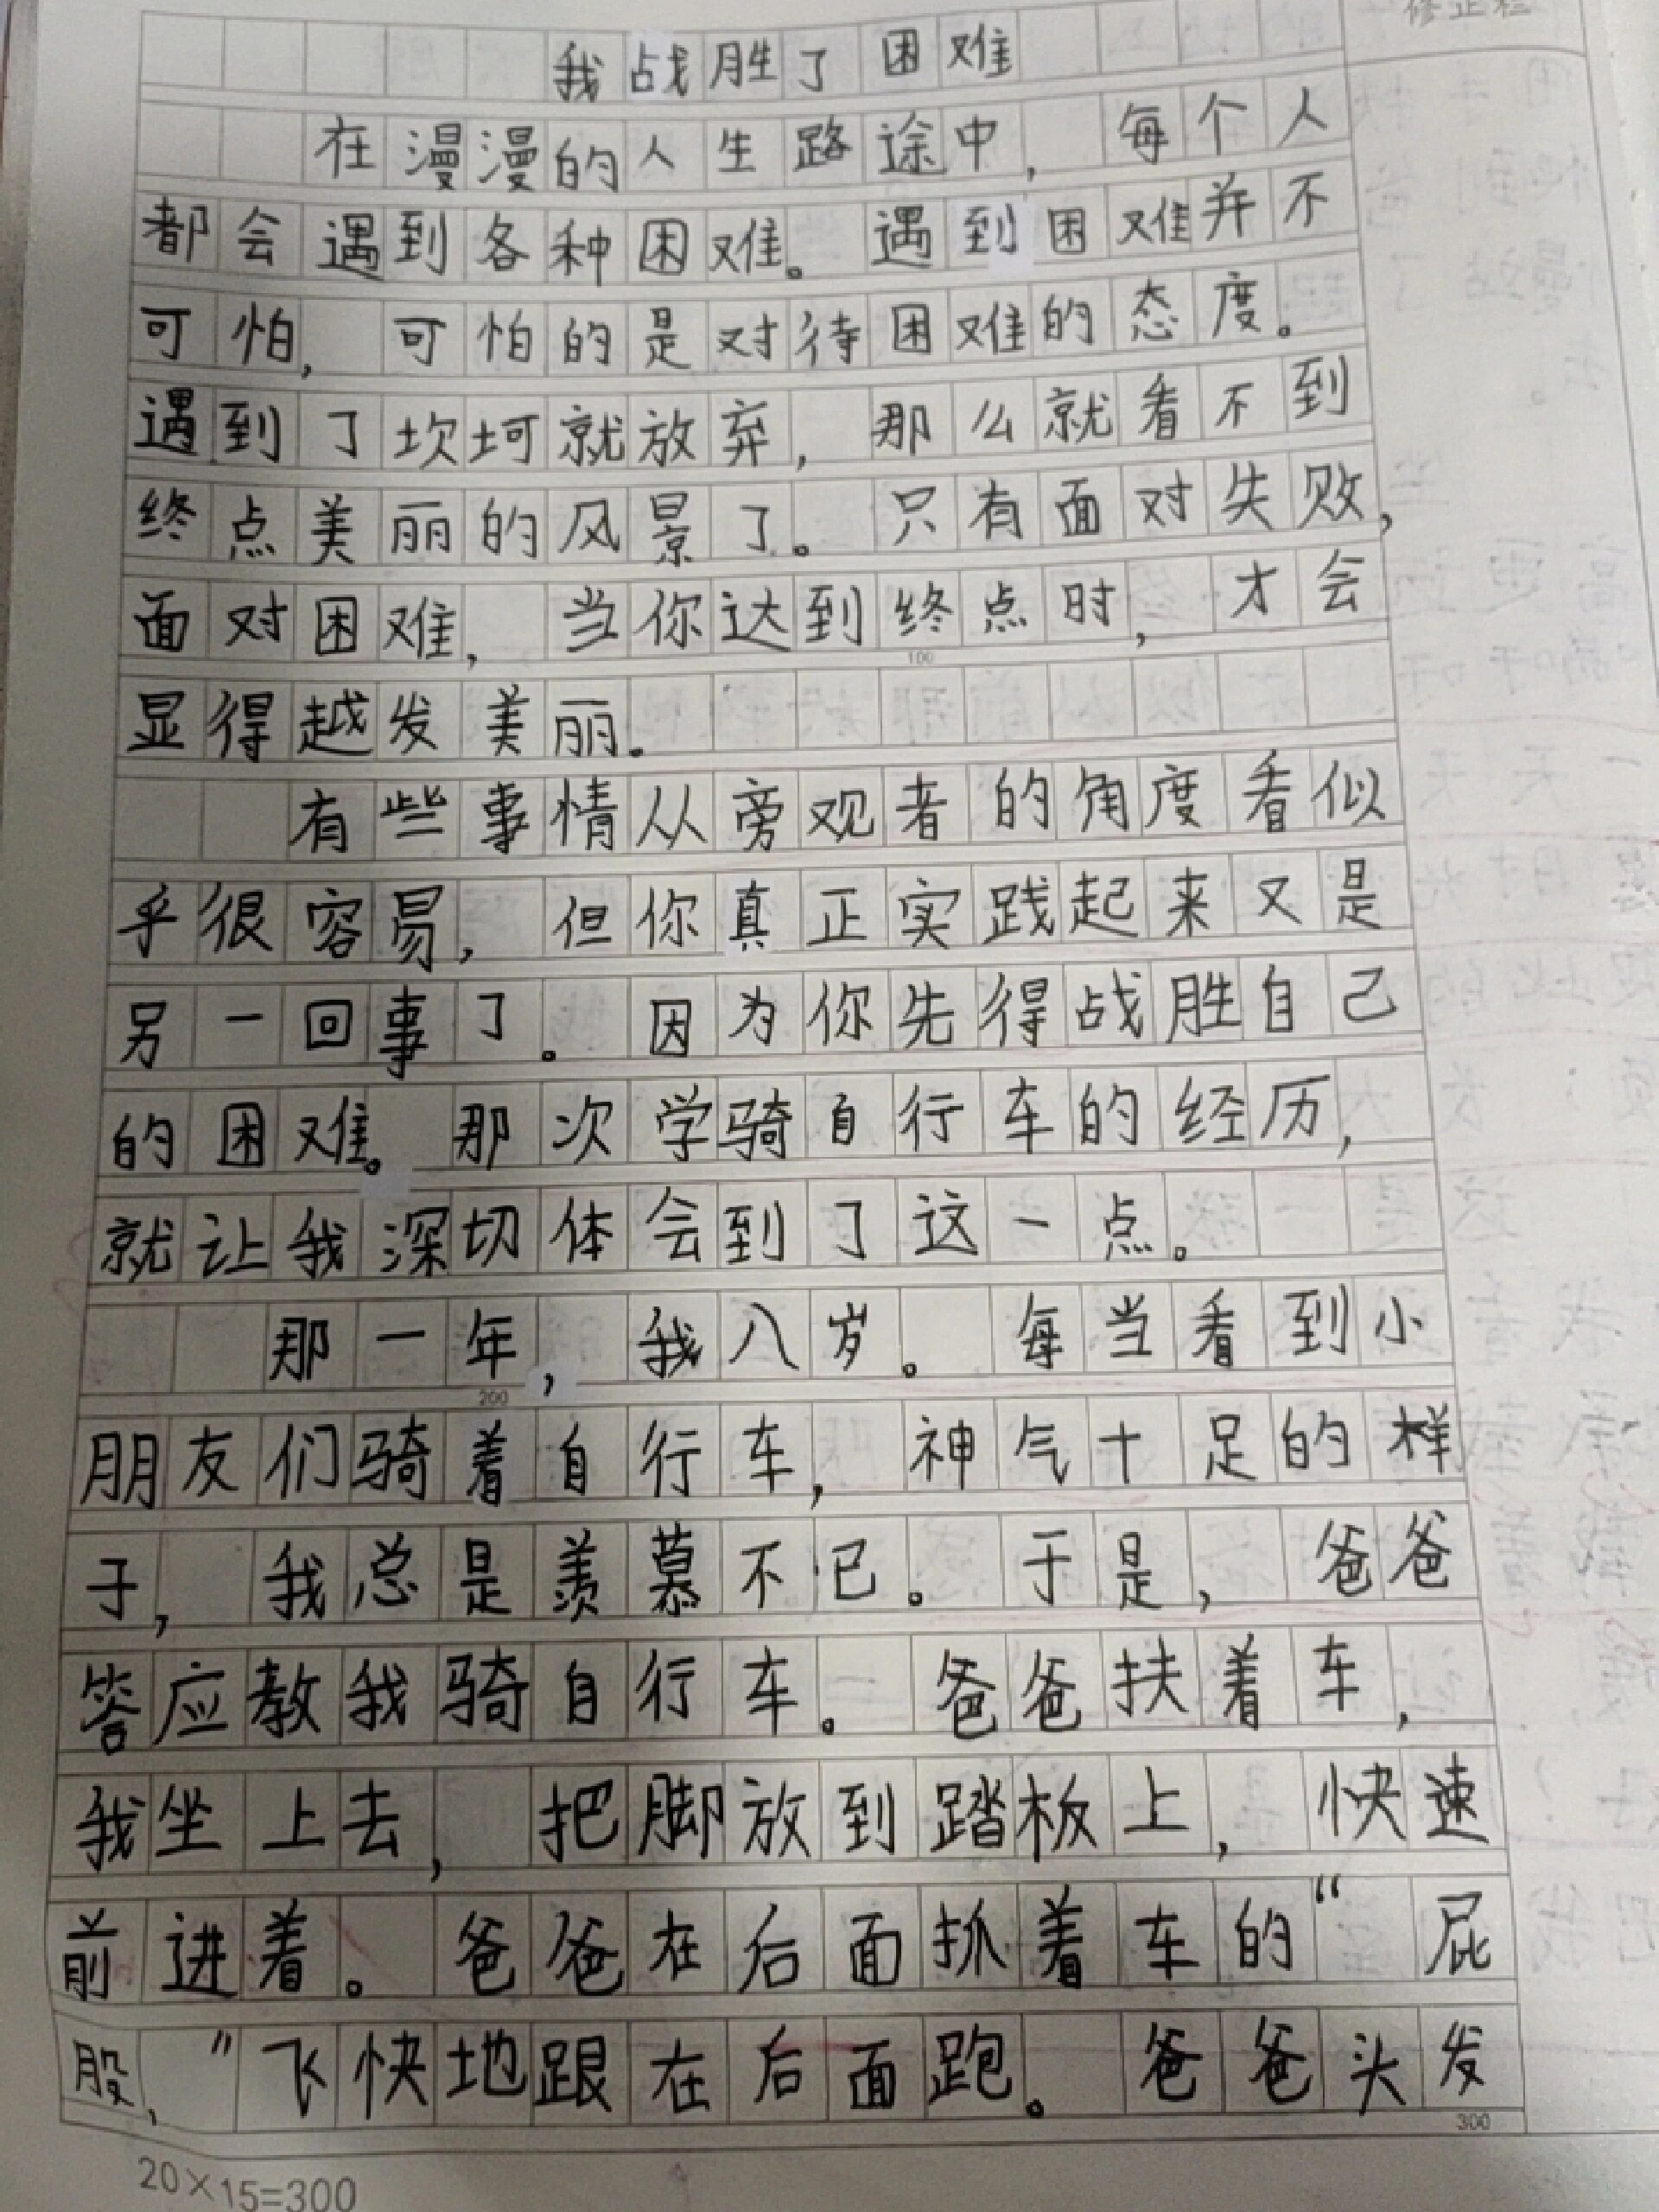 修正栏
我战胜了困难
在漫漫的人生路途中，每个人
都会遇到各种困难。遇到困难并不
可怕，可怕的是对待困难的态度。
遇到了坎坷就放弃，那么就看不到
终点美丽的风景了。只有面对失败，
面对困难，当你达到终点时，才会
100
显得越发美丽。
有些事情从旁观者的角度看似
乎很容易，但你真正实践起来又是
另一回事了。因为你先得战胜自己
的困难。那次学骑自行车的经历，
就让我深切体会到了这一点。
那一年，我八岁。每当看到小
200
朋友们骑着自行车，神气十足的样
子，我总是羡慕不已。于是，爸爸
答应教我骑自行车。爸爸扶着车，
我坐上去，把脚放到踏板上，快速
前进着。爸爸在后面抓着车的“屁
股，”飞快地跟在后面跑。爸爸头发
300
20×15=300